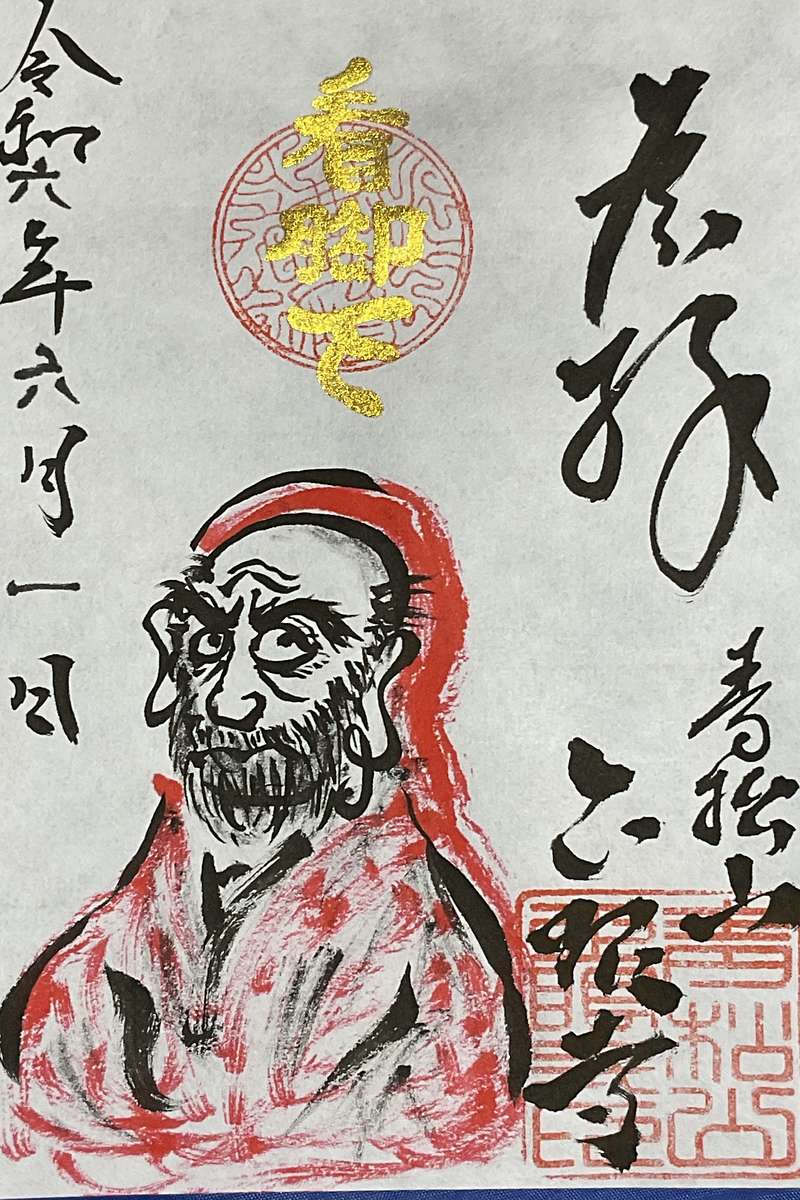 奉拝
青松山
看脚下
令和六年六月一日